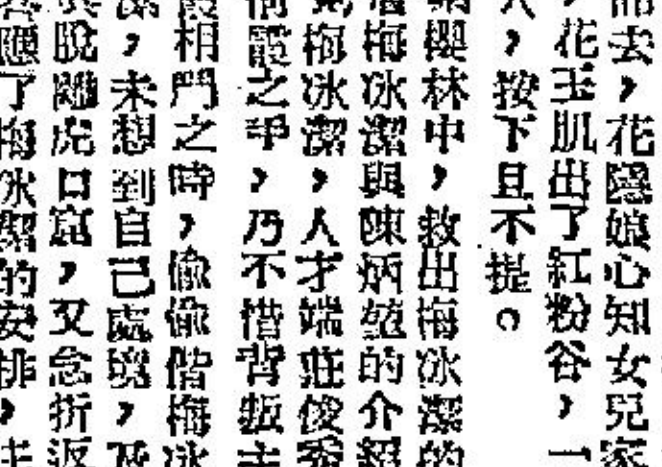 去，花隱娘心知女兒家
，花玉肌出了紅粉谷，一
人，按下且不提。
櫻林中，救出梅冰潔的
梅冰潔與陳炳堃的介紹
梅冰潔，人才端莊俊秀
霞之手，乃不惜背叛主
相鬥之時，偷偷偕梅冰
，未想到自己處境，及
脫離虎口窟，又念折返
應了梅冰潔的安排，